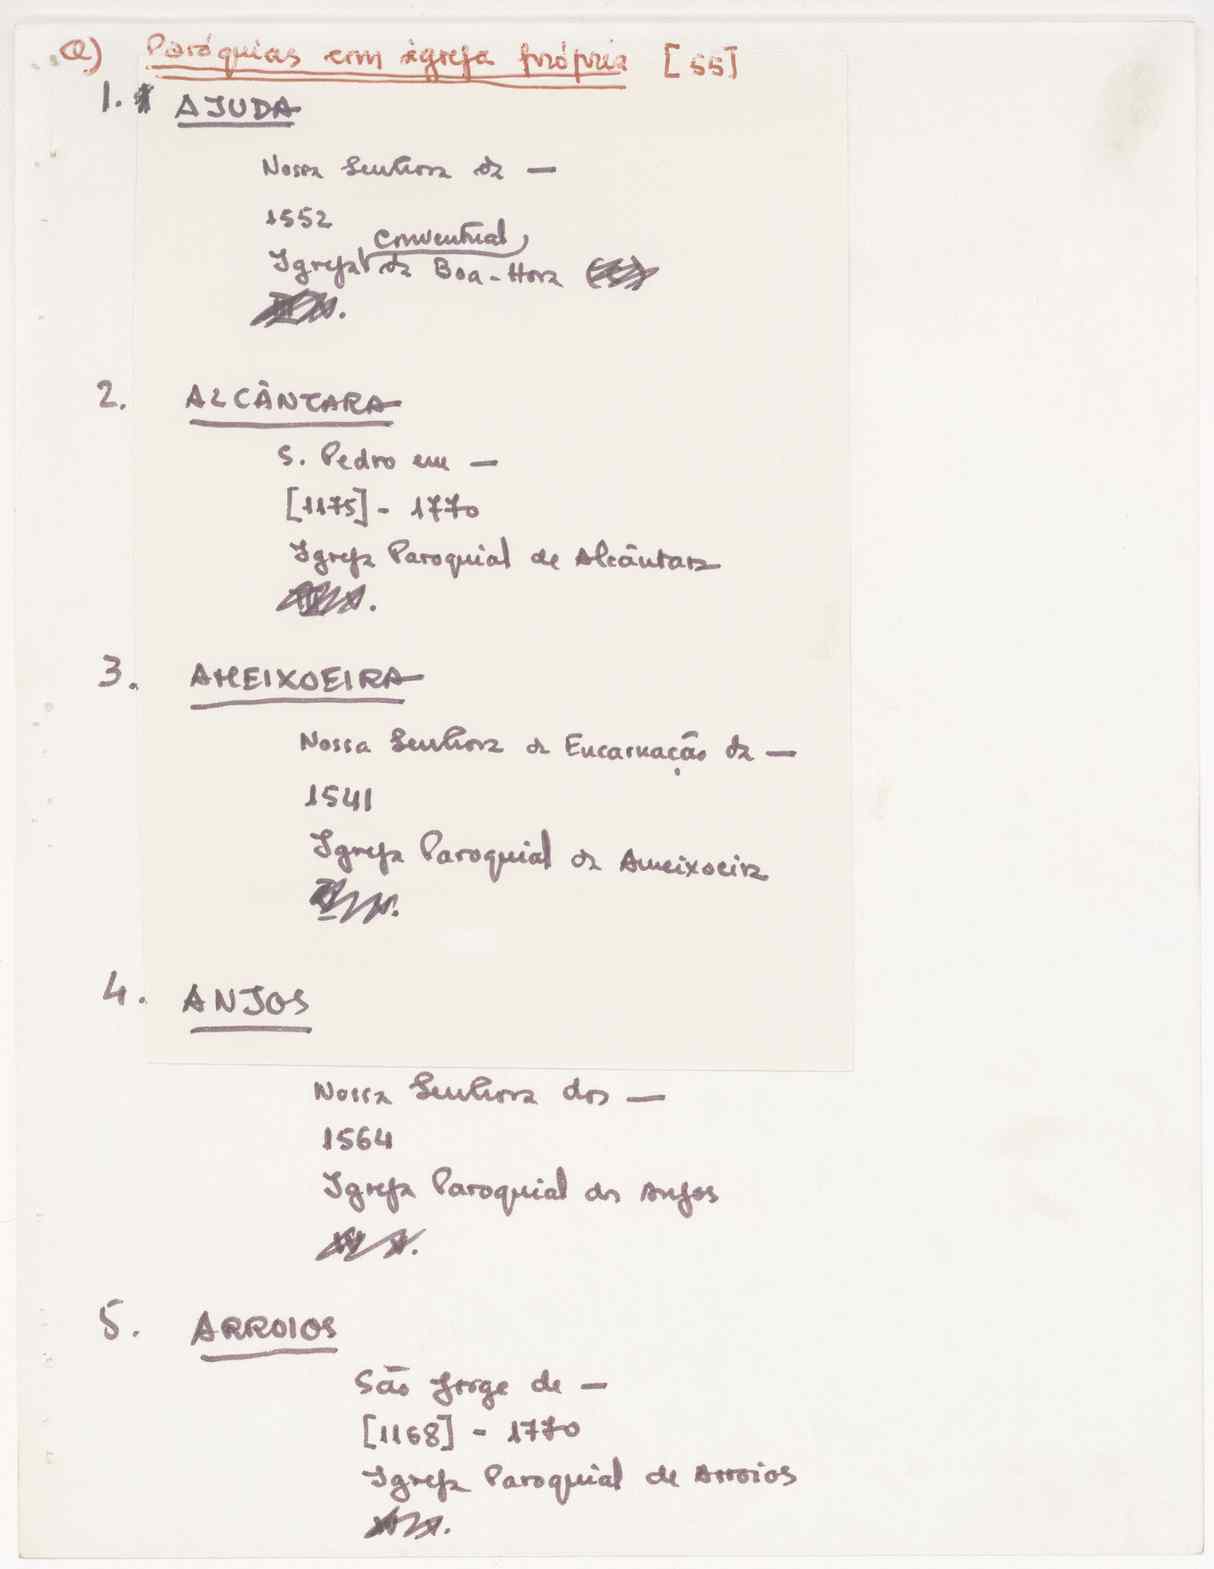 a) Paróquias com igreja própria [55]
1. AJUDA
Nossa Senhora da —
1552
Conventual
Igreja da Boa-Hora
2. ALCÂNTARA
S. Pedro em —
[1175] - 1770
Igreja Paroquial de Alcântara
3. AMEIXOEIRA
Nossa Senhora da Encarnação da —
1541
Igreja Paroquial da Ameixoeira
4. ANJOS
Nossa Senhora dos —
1564
Igreja Paroquial dos Anjos
5. ARROIOS
São Jorge de —
[1168] - 1770
Igreja Paroquial de Arroios